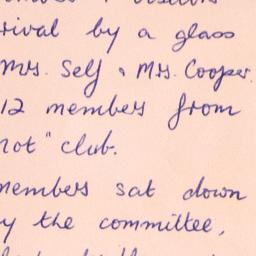 rival by a glass
Mrs. Self & Mrs. Cooper.
12 members from
not" club.
members sat down
y the committee,